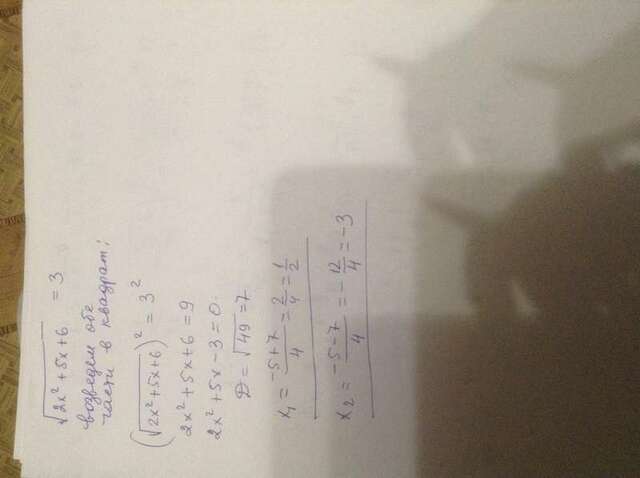 √(2x² + 5x + 6) = 3
возведем обе
части в квадрат:
(√(2x² + 5x + 6))² = 3²
2x² + 5x + 6 = 9
2x² + 5x − 3 = 0.
D = √49 = 7
x₁ = (−5+7)/4 = 2/4 = 1/2
x₂ = (−5−7)/4 = −12/4 = −3